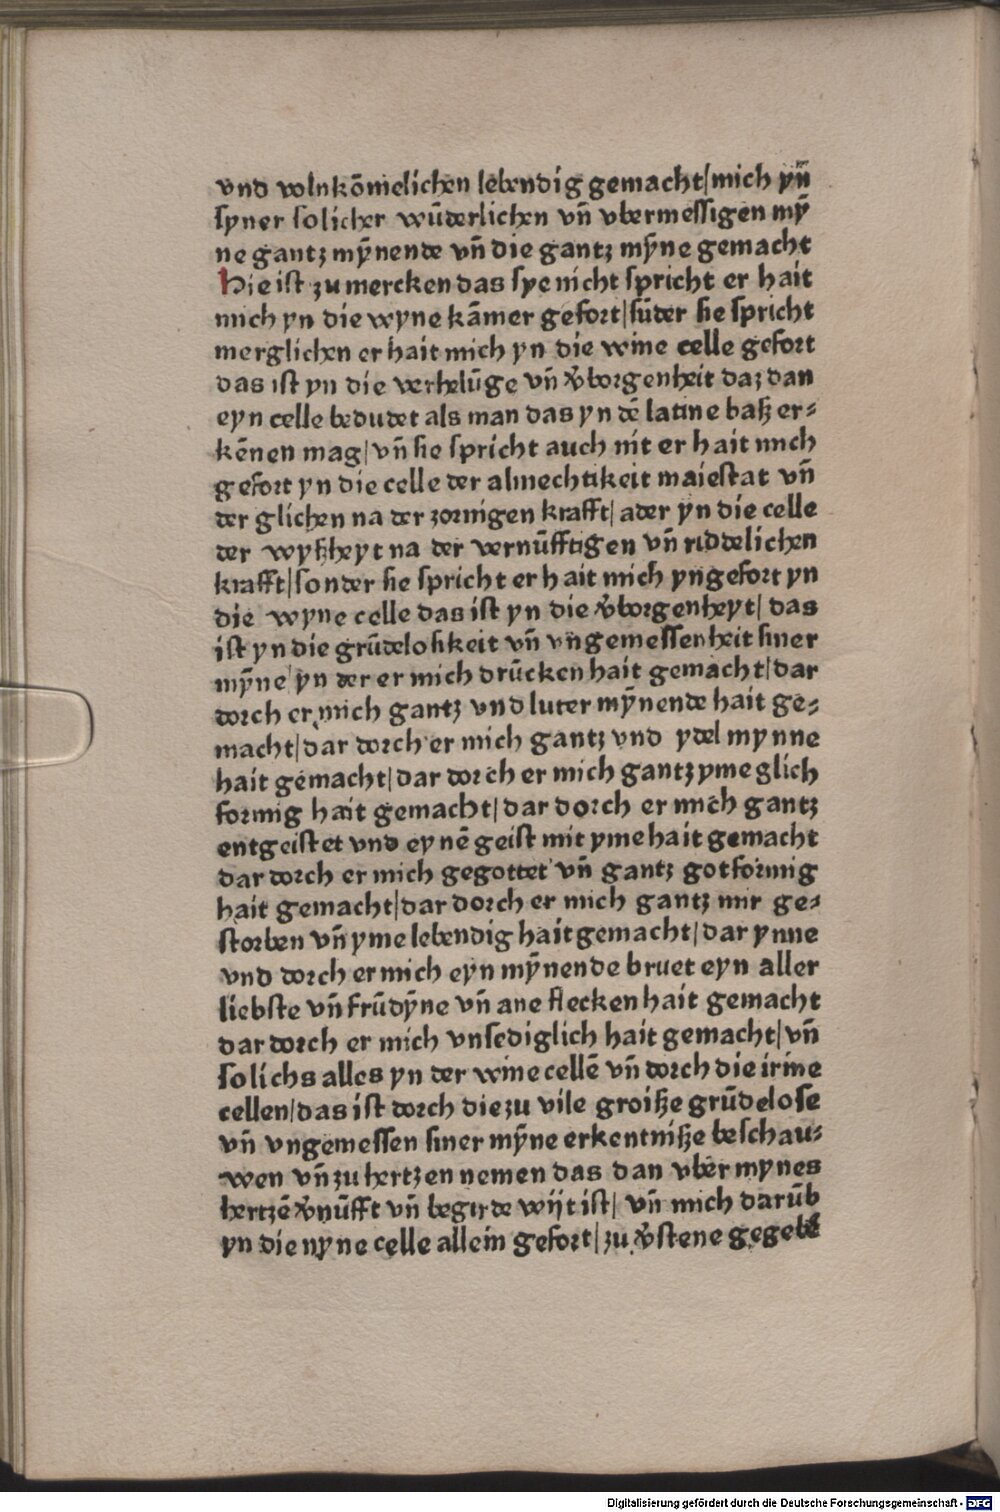 vnd volnkōmelichen lebendig gemacht/mich yñ
syner solicher wūderlichen vñ vbermessigen mȳ
ne gantz mȳnende vñ die gantz mȳne gemacht
Hie ist zu mercken das sye nicht spricht er hait
mich yn die wyne kāmer gefort/sūder sie spricht
merglichen er hait mich yn die wine celle gefort
das ist yn die verhelūge vñ v̾borgenheit daz dan
eyn celle bedudet als man das yn dē latine baß er⸗
kēnen mag/vñ sie spricht auch nit er hait mich
gefort yn die celle der almechtikeit maiestat vñ
der glichen na der zornigen krafft/ader yn die celle
der wyßheyt na der vernūfftigen vñ riddelichen
krafft/sonder sie spricht er hait mich yngefort yn
die wyne celle das ist yn die v̾borgenheyt/das
ist yn die grūdelosikeit vñ vngemessenheit siner
mȳne yn der er mich drūcken hait gemacht/dar
dorch er mich gantz vnd luter mȳnende hait ge⸗
macht/dar dorch er mich gantz vnd ydel mynne
hait gemacht/dar dorch er mich gantz yme glich
formig hait gemacht/dar dorch er mich gantz
entgeistet vnd eynē geist mit yme hait gemacht
dar dorch er mich gegottet vñ gantz gotformig
hait gemacht/dar dorch er mich gantz mir ge⸗
storben vñ yme lebendig hait gemacht/dar ynne
vnd dorch er mich eyn mȳnende bruet eyn aller
liebste vñ frūdȳne vñ ane flecken hait gemacht
dar dorch er mich vnsediglich hait gemacht/vñ
solichs alles yn der wine cellē vñ dorch die irine
cellen/das ist dorch die zu vile groiße grūdelose
vñ vngemessen siner mȳne erkentniße beschau⸗
wen vñ zu hertzen nemen das dan vber mynes
hertzē v̾nūfft vñ begirde wijt ist/ vñ mich darūb
yn die wyne celle allein gefort/zu v̾stene gegebē
Digitalisierung gefördert durch die Deutsche Forschungsgemeinschaft - DFG